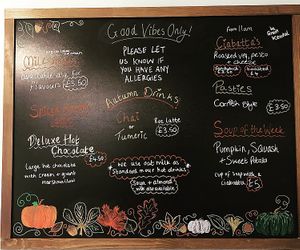 Good Vibes Only!
PLEASE LET
US KNOW IF
YOU HAVE ANY
ALLERGIES
Autumn Drinks
Chai
or
Turmeric
Latte
£3.50
We use oat milk as
Standard in our hot drinks
Soya + almond
milk also available
£3.50
Deluxe Hot
Chocolate
£4.50
large hot chocolate
with cream + giant
marshmallow
from 11am
Ciabatta's
Roasted veg, pesto
+ cheese
Pasties
Cornish Style
£3.50
Soup of the Week
Pumpkin, Squash
+ Sweet Potato
cup of soup with a
ciabatta £5